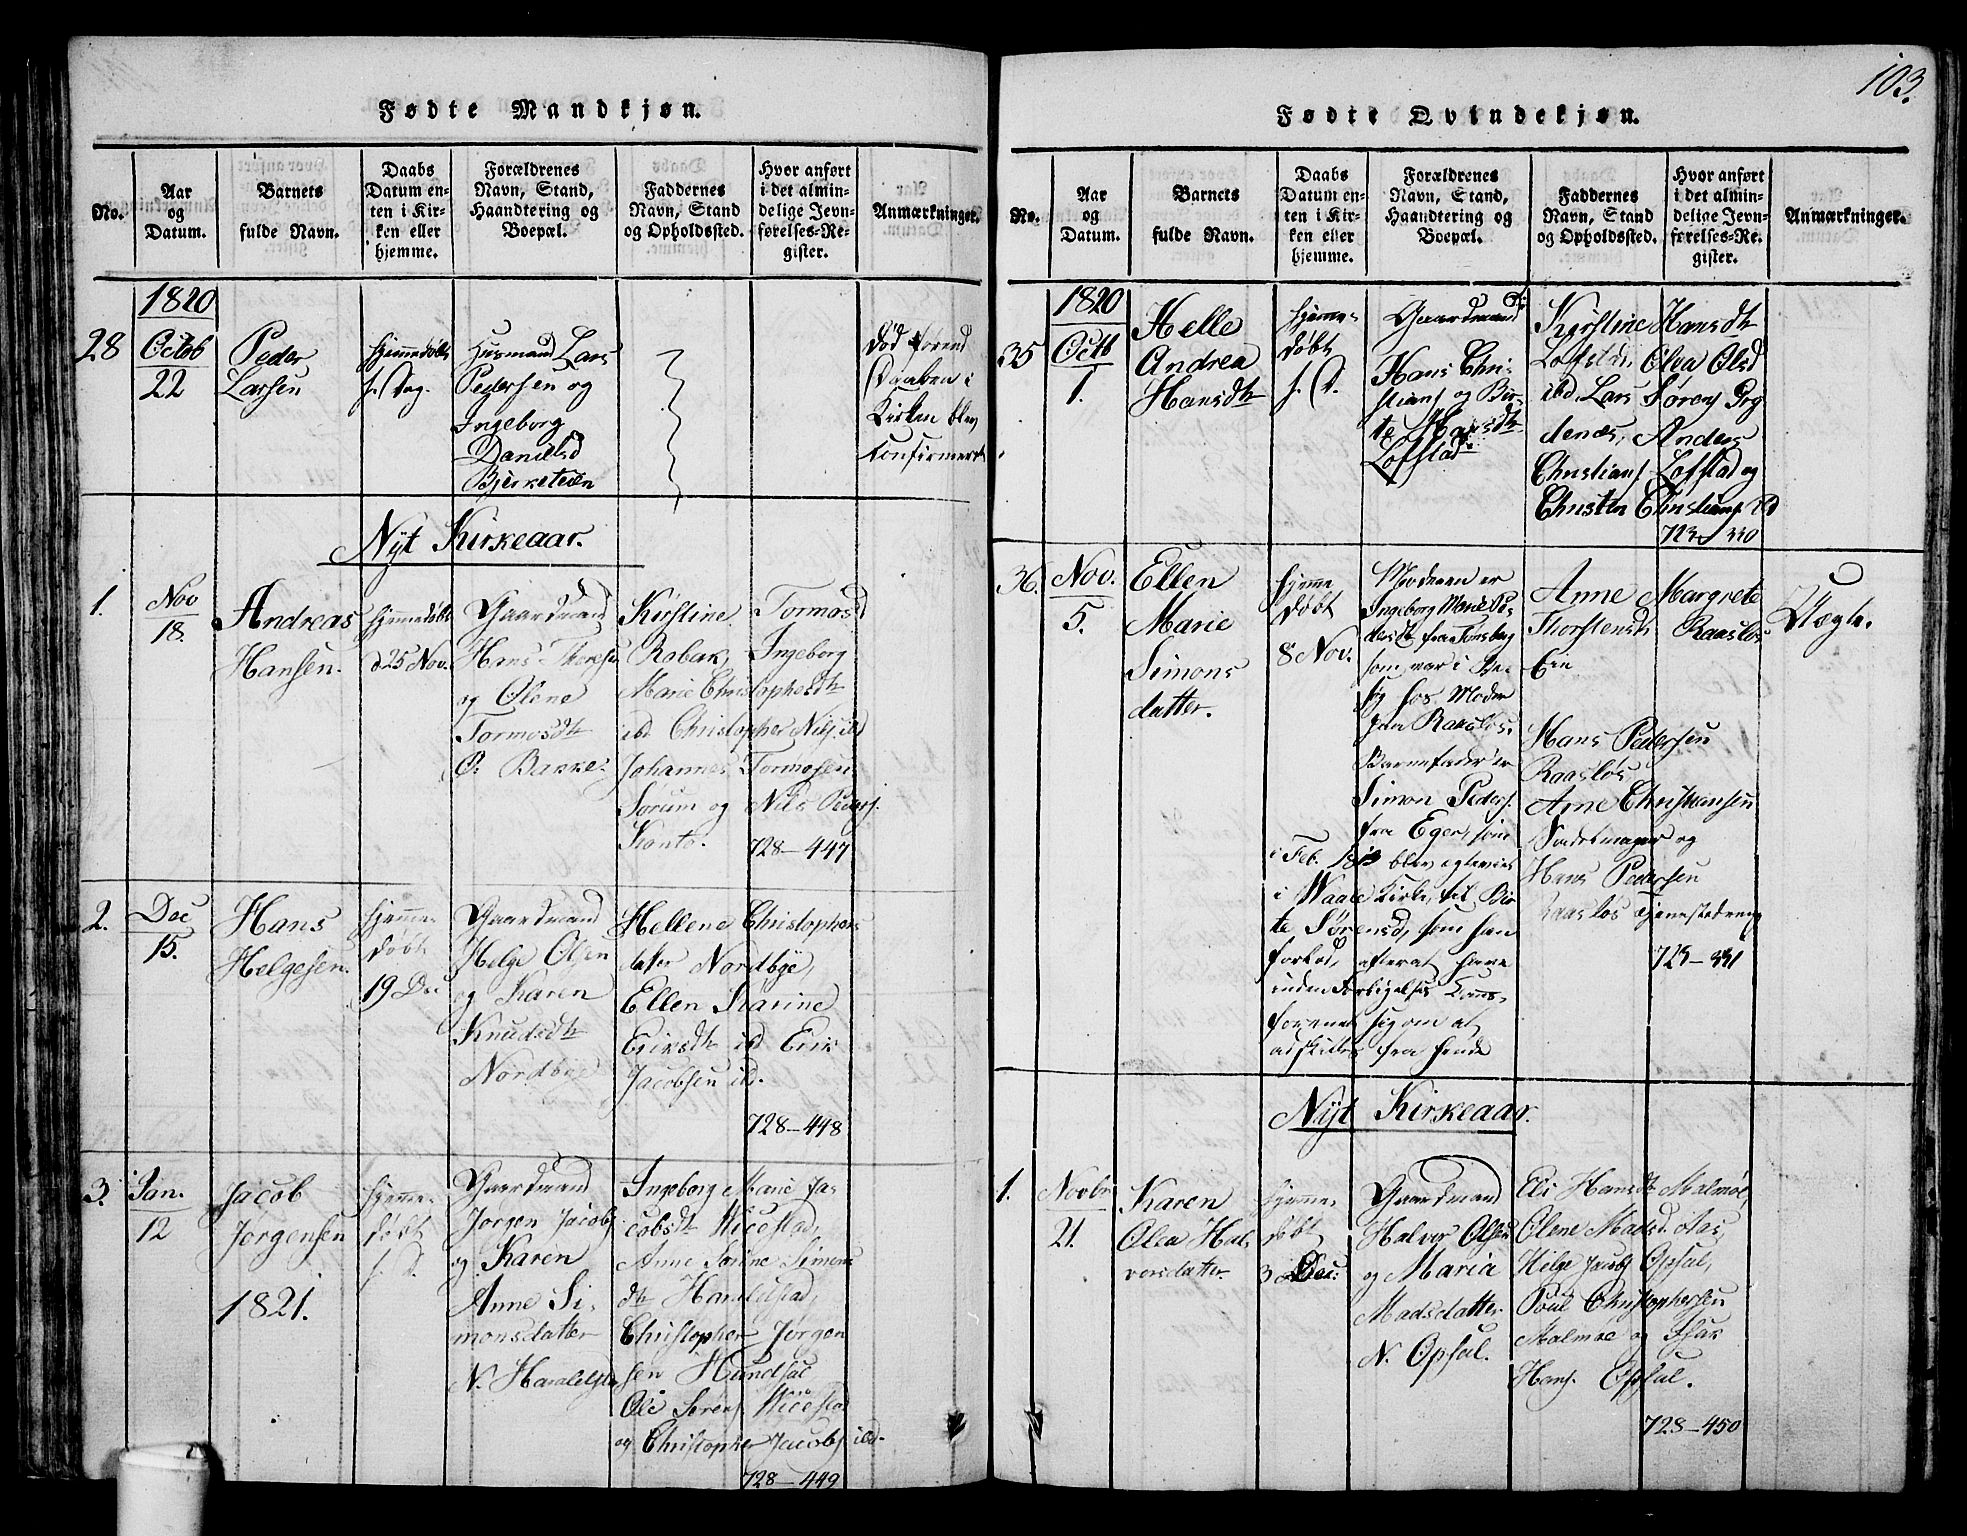 103.
Fødte Mandkjøn.
No.
Aar
og
Datum.
Barnets
fulde Navn.
Daabs
Datum en-
ten i Kir-
ken eller
hjemme.
Forældrenes
Navn, Stand,
Haandtering og
Boepæl.
Faddernes
Navn, Stand
og Opholdssted.
Hvor anført
i det almin-
delige Jevn-
førelses-Re-
gister.
Anmærkninger.
28
1820
Octob
22
Peder
Larsen
Hjemmedøbt
s. Dag.
Husmand Lars
Pedersen og
Ingeborg
Danielsd
Bjerketeien
Død forend
Daaben i
Kirken blev
Confirmert
Nyt Kirkeaar.
1.
Nov
18.
Andreas
Hansen.
Hjemmedøbt
d 25 Nov.
Gaardmand
Hans Thores.
og Olene
Tormosdtr
Ø. Bakke.
Kirstine Tormosd
Robæk, Ingeborg
Marie Christophersdtr
ibd Christopher Nils. ibd
Johannes Tormosen
Sørum og Nils Peders.
Konto.
728-447
2.
Dec
15.
Hans
Helgesen.
Hjemme-
døbt
19 Dec
Gaardmand
Helge Olsen
og Karen
Knudsdtr
Nordbye
Hellene Christophers
datter Nordbye,
Ellen Karine
Eriksdtr ibd Erik
Jacobsen ibd.
728-448
3.
Jan.
12
Jacob
Jørgensen
1821.
Hjemme-
døbt
s. D.
Gaardmand
Jørgen Jacobs.
og Karen
Anne Si-
monsdatter
N. Haraldst
Ingeborg Marie Ja-
cobsdtr Wicestad,
Anne Sørine Simons
dtr Haraldstad,
Christopher Jørgen
sen Hundsal
Ole Sørens. Wicestad
og Christopher Jacobs. ibd.
728-449
Fødte Qvindekjøn.
No.
Aar
og
Datum.
Barnets
fulde Navn.
Daabs
Datum en-
ten i Kir-
ken eller
hjemme.
Forældrenes
Navn, Stand,
Haandtering og
Boepæl.
Faddernes
Navn, Stand
og Opholdssted.
Hvor anført
i det almin-
delige Jevn-
førelses-Re-
gister.
Anmærkninger.
35
1820
Octb
1.
Helle
Andrea
Hansdtr
Hjemme-
døbt
s. D.
Gaardmand
Hans Chri-
stians. og Bir-
te Hansdtr
Lofstad.
Kirstine Hansdtr
Lofstd, Olea Olsd
ibd Lars Sørens
Anders
Christians. Lofstad og
Christen Christians. ibd
723-330
36.
Nov.
5.
Ellen
Marie
Simons
datter.
Hjemme
døbt
8 Nov.
Moderen er
Ingeborg Marie Pe-
dersdtr fra Tønsberg
som var i Be-
søg hos Moder
fra Raasløs.
Barnefader er
Simon Peders.
fra Eger, som
i Feb. blev egteviet
i Waale Kirke, til Bir-
te Sørensd, som han
forlod, efterat have
uden Forbigelse
sig om at
adskilles fra hende
Anne Margrete
Thorstensd Raasløs
Hans Pedersen
Raasløs
Arne Christiansen
og
Hans Pedersen
Raasløs tjenestedreng
723-331
Uægte.
Nyt Kirkeaar.
1.
Novbr
21.
Karen
Olea Hal-
vorsdatter.
Hjemme-
døbt
3 Dec.
Gaardmand
Halvor Olsen
og Maria
Madsdatter
N. Opsal.
Eli Hansdtr Malmøe,
Olene Madsd. Aas,
Helge Jacobs. Opsal,
Poul Christophersen
Malmøe og Isak
Hans. Opsal.
728-450